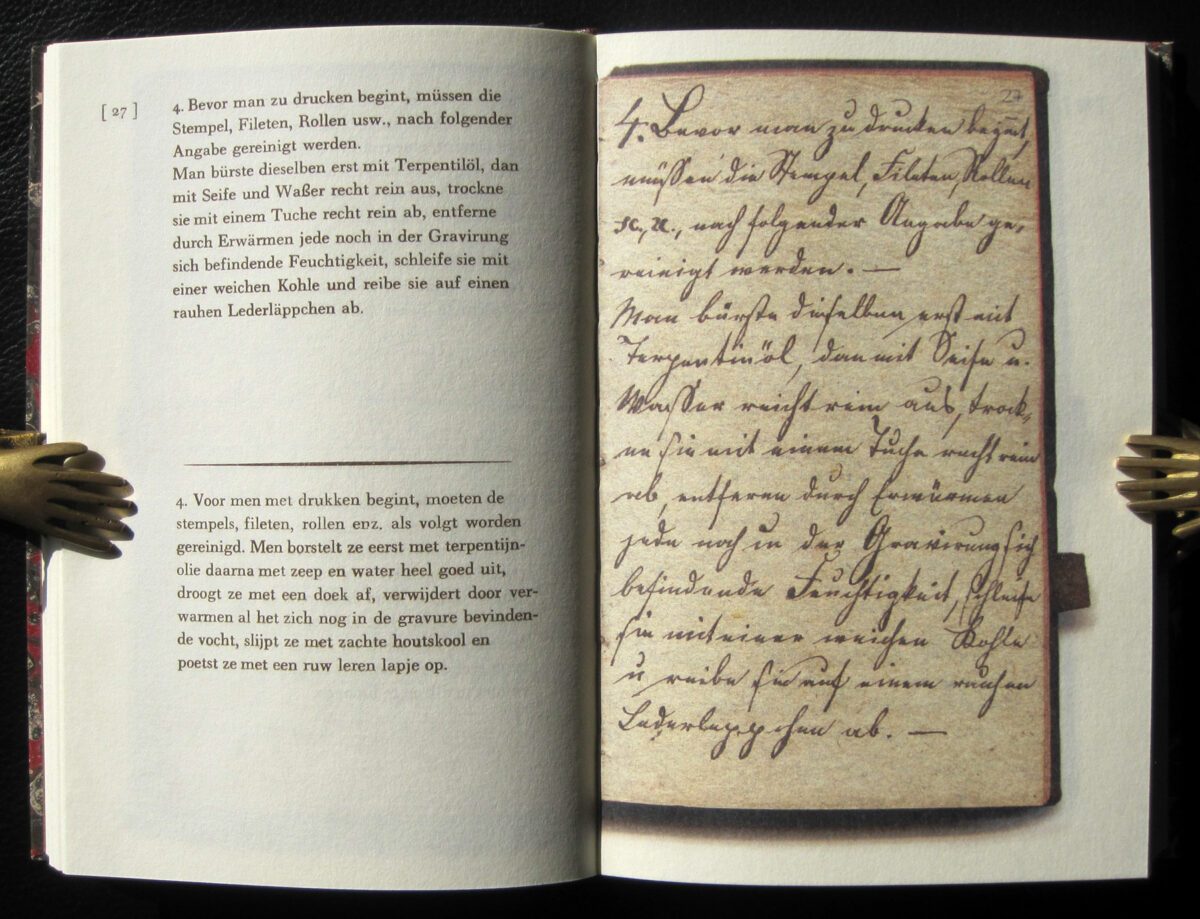 [ 27 ]
4. Bevor man zu drucken begint, müssen die
Stempel, Fileten, Rollen usw., nach folgender
Angabe gereinigt werden.
Man bürste dieselben erst mit Terpentilöl, dan
mit Seife und Waßer recht rein aus, trockne
sie mit einem Tuche recht rein ab, entferne
durch Erwärmen jede noch in der Gravirung
sich befindende Feuchtigkeit, schleife sie mit
einer weichen Kohle und reibe sie auf einen
rauhen Lederläppchen ab.
4. Voor men met drukken begint, moeten de
stempels, fileten, rollen enz. als volgt worden
gereinigd. Men borstelt ze eerst met terpentijn-
olie daarna met zeep en water heel goed uit,
droogt ze met een doek af, verwijdert door ver-
warmen al het zich nog in de gravure bevinden-
de vocht, slijpt ze met zachte houtskool en
poetst ze met een ruw leren lapje op.
27
4. Bevor man zu drucken begint,
müssen die Stempel, Fileten, Rollen
nach folgender Angabe ge-
reinigt werden. —
Man bürste dieselben erst mit
Terpentinöl, dan mit Seife u.
Wasser reicht rein aus, trock-
ne sie mit einem Tuche recht rein
ab, entferen durch Erwärmen
jede noch in der Gravirung sich
befindende Feuchtigkeit, schleife
sie mit einer weichen Kohle
u reibe sie auf einem rauhen
Lederleppchen ab. —